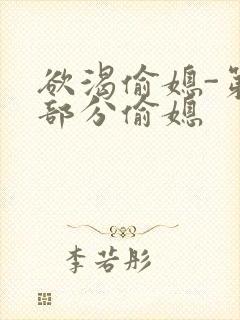 欲渴偷媳-第
部分偷媳
李若彤